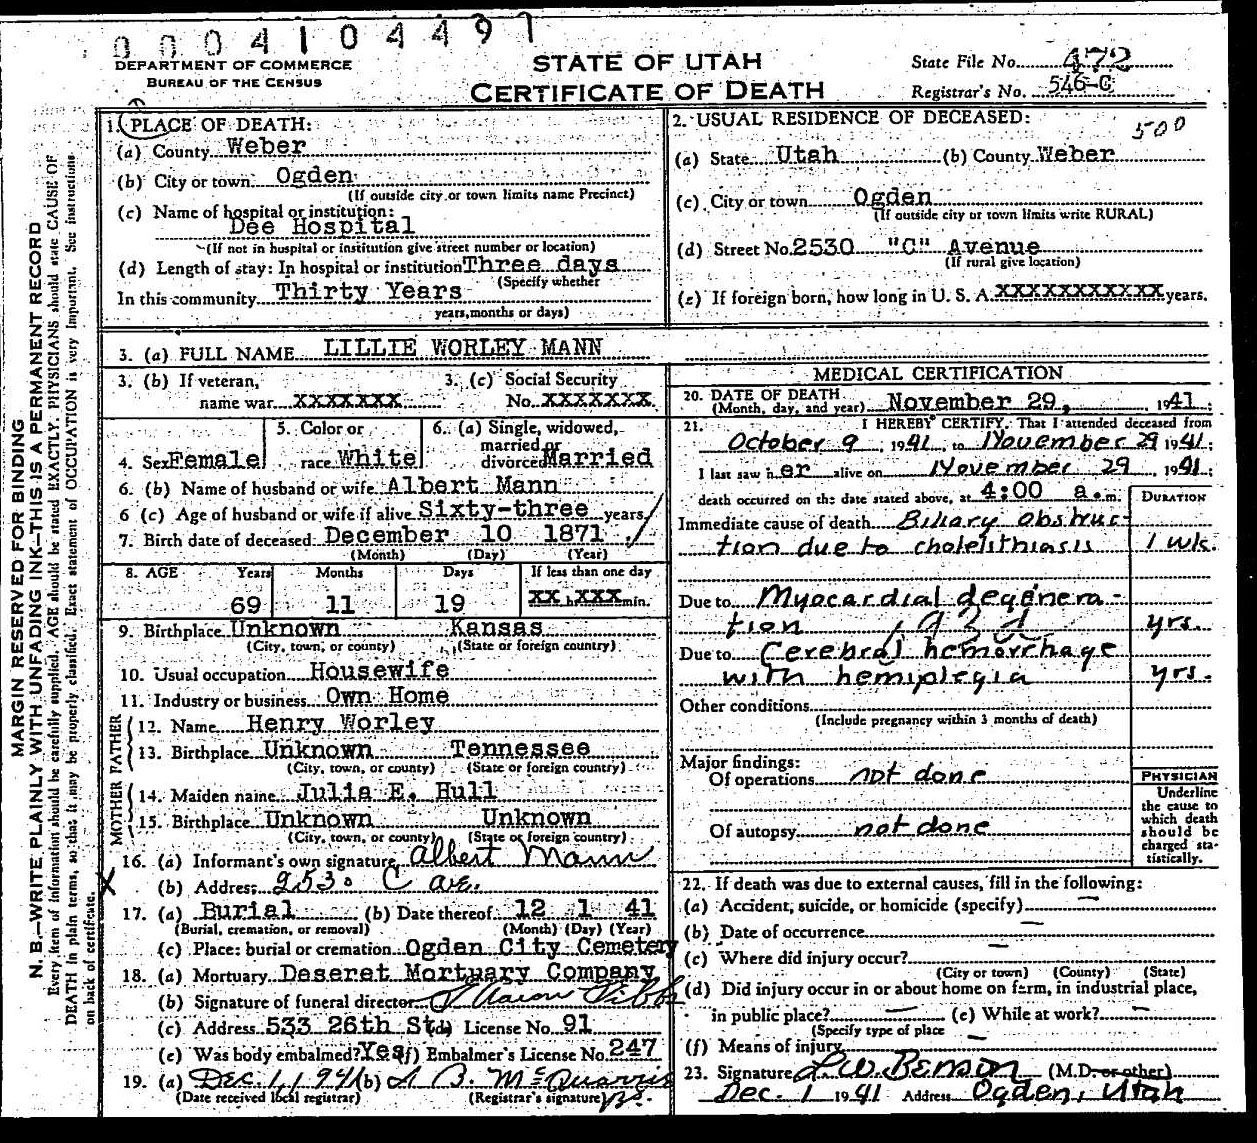 0004104497
DEPARTMENT OF COMMERCE
BUREAU OF THE CENSUS
STATE OF UTAH
CERTIFICATE OF DEATH
State File No. 472
Registrar's No. 546-C
MARGIN RESERVED FOR BINDING
N. B.—WRITE PLAINLY WITH UNFADING INK—THIS IS A PERMANENT RECORD
Every item of information should be carefully supplied. AGE should be stated EXACTLY. PHYSICIANS should state CAUSE OF
DEATH in plain terms, so that it may be properly classified. Exact statement of OCCUPATION is very important. See instructions
on back of certificate.
1. PLACE OF DEATH:
(a) County Weber
(b) City or town Ogden
(If outside city or town limits name Precinct)
(c) Name of hospital or institution:
Dee Hospital
(If not in hospital or institution give street number or location)
(d) Length of stay: In hospital or institution Three days
(Specify whether
In this community Thirty Years
years, months or days)
2. USUAL RESIDENCE OF DECEASED:
500
(a) State Utah (b) County Weber
(c) City or town Ogden
(If outside city or town limits write RURAL)
(d) Street No. 2530 "C" Avenue
(If rural give location)
(e) If foreign born, how long in U. S. A. XXXXXXXXXXX years.
3. (a) FULL NAME LILLIE WORLEY MANN
3. (b) If veteran,
name war XXXXXXX
3. (c) Social Security
No. XXXXXXX
4. Sex Female
5. Color or
race White
6. (a) Single, widowed,
married or
divorced Married
6. (b) Name of husband or wife Albert Mann
6 (c) Age of husband or wife if alive Sixty-three years
7. Birth date of deceased December 10 1871
(Month) (Day) (Year)
8. AGE Years Months Days If less than one day
69 11 19 XX h XXX min.
9. Birthplace Unknown Kansas
(City, town, or county) (State or foreign country)
10. Usual occupation Housewife
11. Industry or business Own Home
FATHER
12. Name Henry Worley
13. Birthplace Unknown Tennessee
(City, town, or county) (State or foreign country)
MOTHER
14. Maiden name Julia E. Hull
15. Birthplace Unknown Unknown
(City, town, or county) (State or foreign country)
16. (a) Informant's own signature Albert Mann
X
(b) Address 2530 C ave.
17. (a) Burial (b) Date thereof 12 1 41
(Burial, cremation, or removal) (Month) (Day) (Year)
(c) Place: burial or cremation Ogden City Cemetery
18. (a) Mortuary Deseret Mortuary Company
(b) Signature of funeral director
(c) Address 533 26th St. (d) License No. 91
(e) Was body embalmed? Yes (f) Embalmer's License No. 247
19. (a) Dec. 1, 1941 (b)
(Date received local registrar) (Registrar's signature)
MEDICAL CERTIFICATION
20. DATE OF DEATH
(Month, day, and year) November 29, 1941.
21. I HEREBY CERTIFY, That I attended deceased from
October 9, 1941, to November 29 1941;
I last saw her alive on November 29 1941;
death occurred on the date stated above, at 4:00 a.m. DURATION
Immediate cause of death Biliary obstruc-
tion due to cholelithiasis 1 wk.
Due to Myocardial degenera-
tion yrs.
Due to Cerebral hemorrhage
with hemiplegia yrs.
Other conditions
(Include pregnancy within 3 months of death)
Major findings:
Of operations not done
Of autopsy not done
PHYSICIAN
Underline
the cause to
which death
should be
charged sta-
tistically.
22. If death was due to external causes, fill in the following:
(a) Accident, suicide, or homicide (specify) —
(b) Date of occurrence —
(c) Where did injury occur? —
(City or town) (County) (State)
(d) Did injury occur in or about home on farm, in industrial place,
in public place? — (e) While at work? —
(Specify type of place
(f) Means of injury —
23. Signature L. W. Benson (M.D. or other)
Dec. 1 1941 Address Ogden, Utah